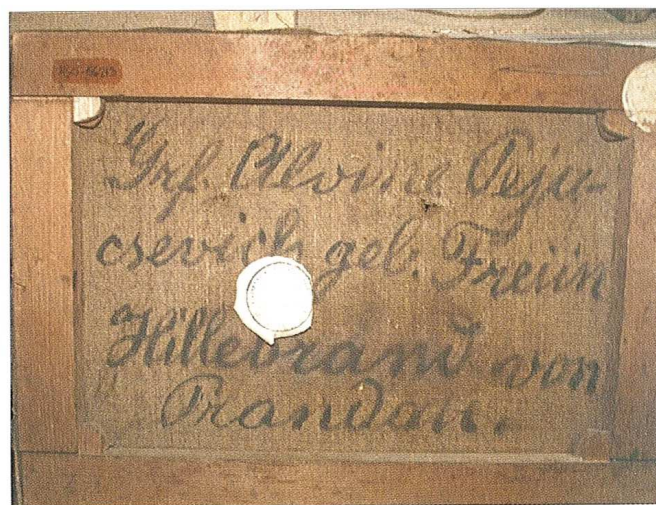 Grf. Alvine Peju-
csevich geb. Freiin
Hillebrand von
Prandau.